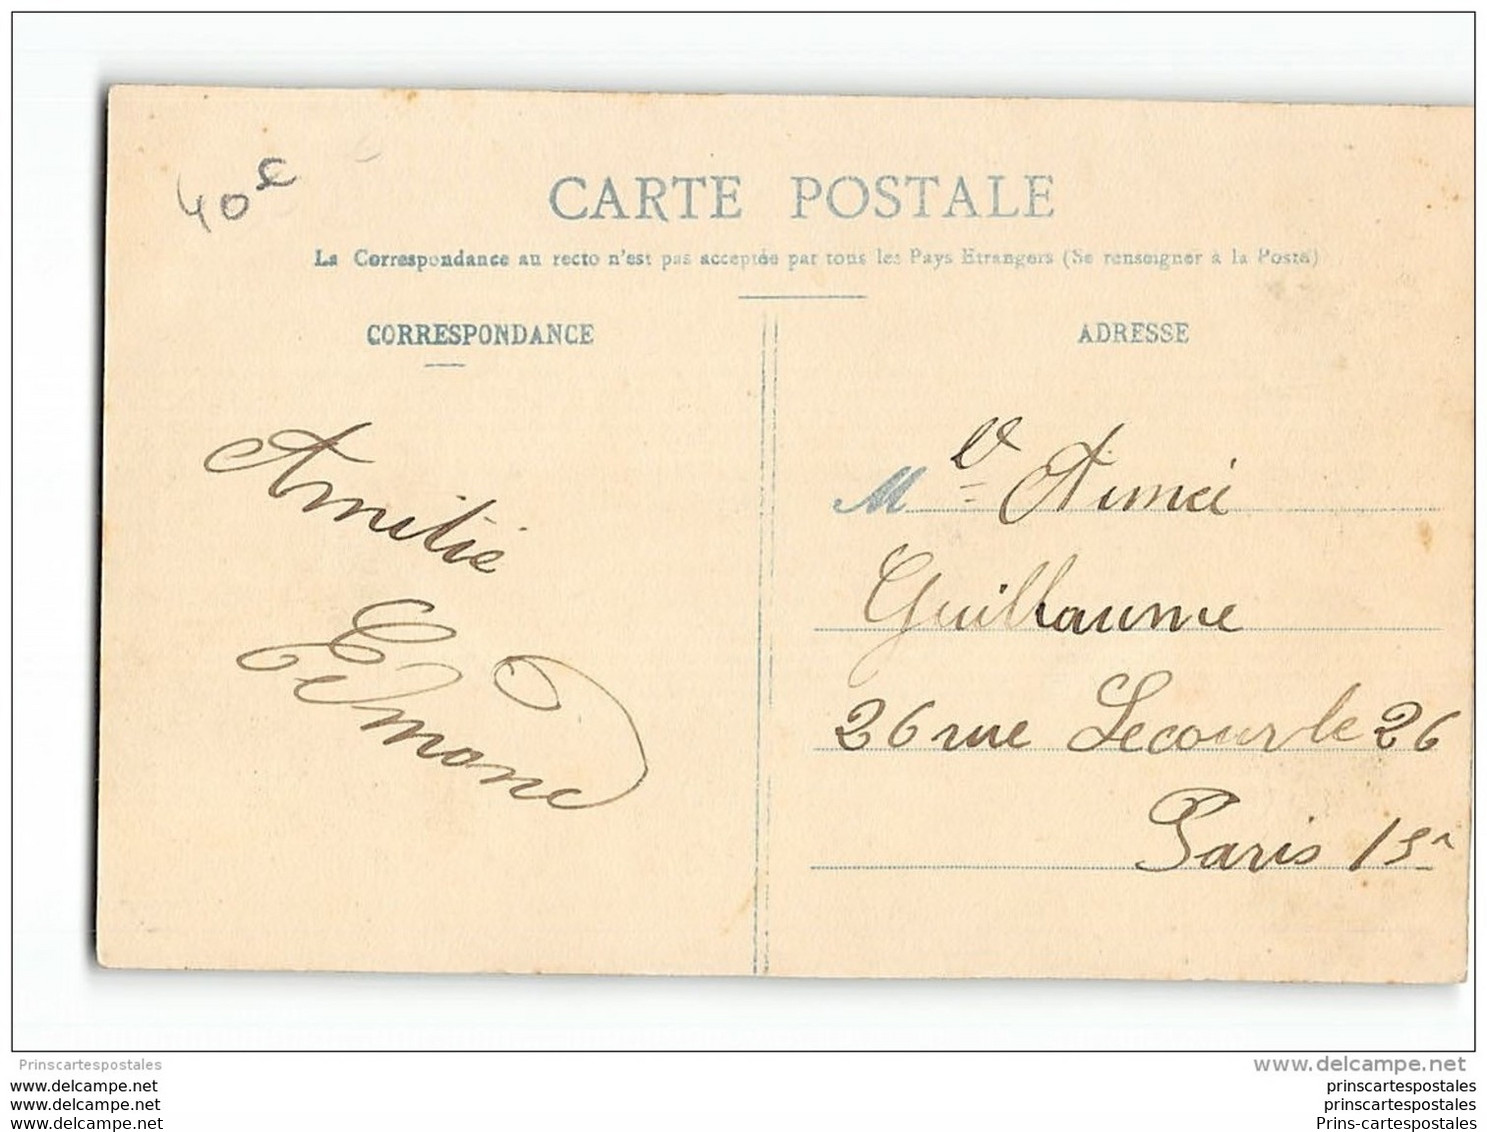 40€
CARTE POSTALE
La Correspondance au recto n'est pas acceptée par tous les Pays Etrangers (Se renseigner à la Poste)
CORRESPONDANCE
Amitié
Edmond
ADRESSE
M Aimée
Guillaume
26 rue Lecourbe 26
Paris 15
Prinscartespostales
www.delcampe.net
www.delcampe.net
www.delcampe.net
www.delcampe.net
prinscartespostales
prinscartespostales
Prins-cartespostales